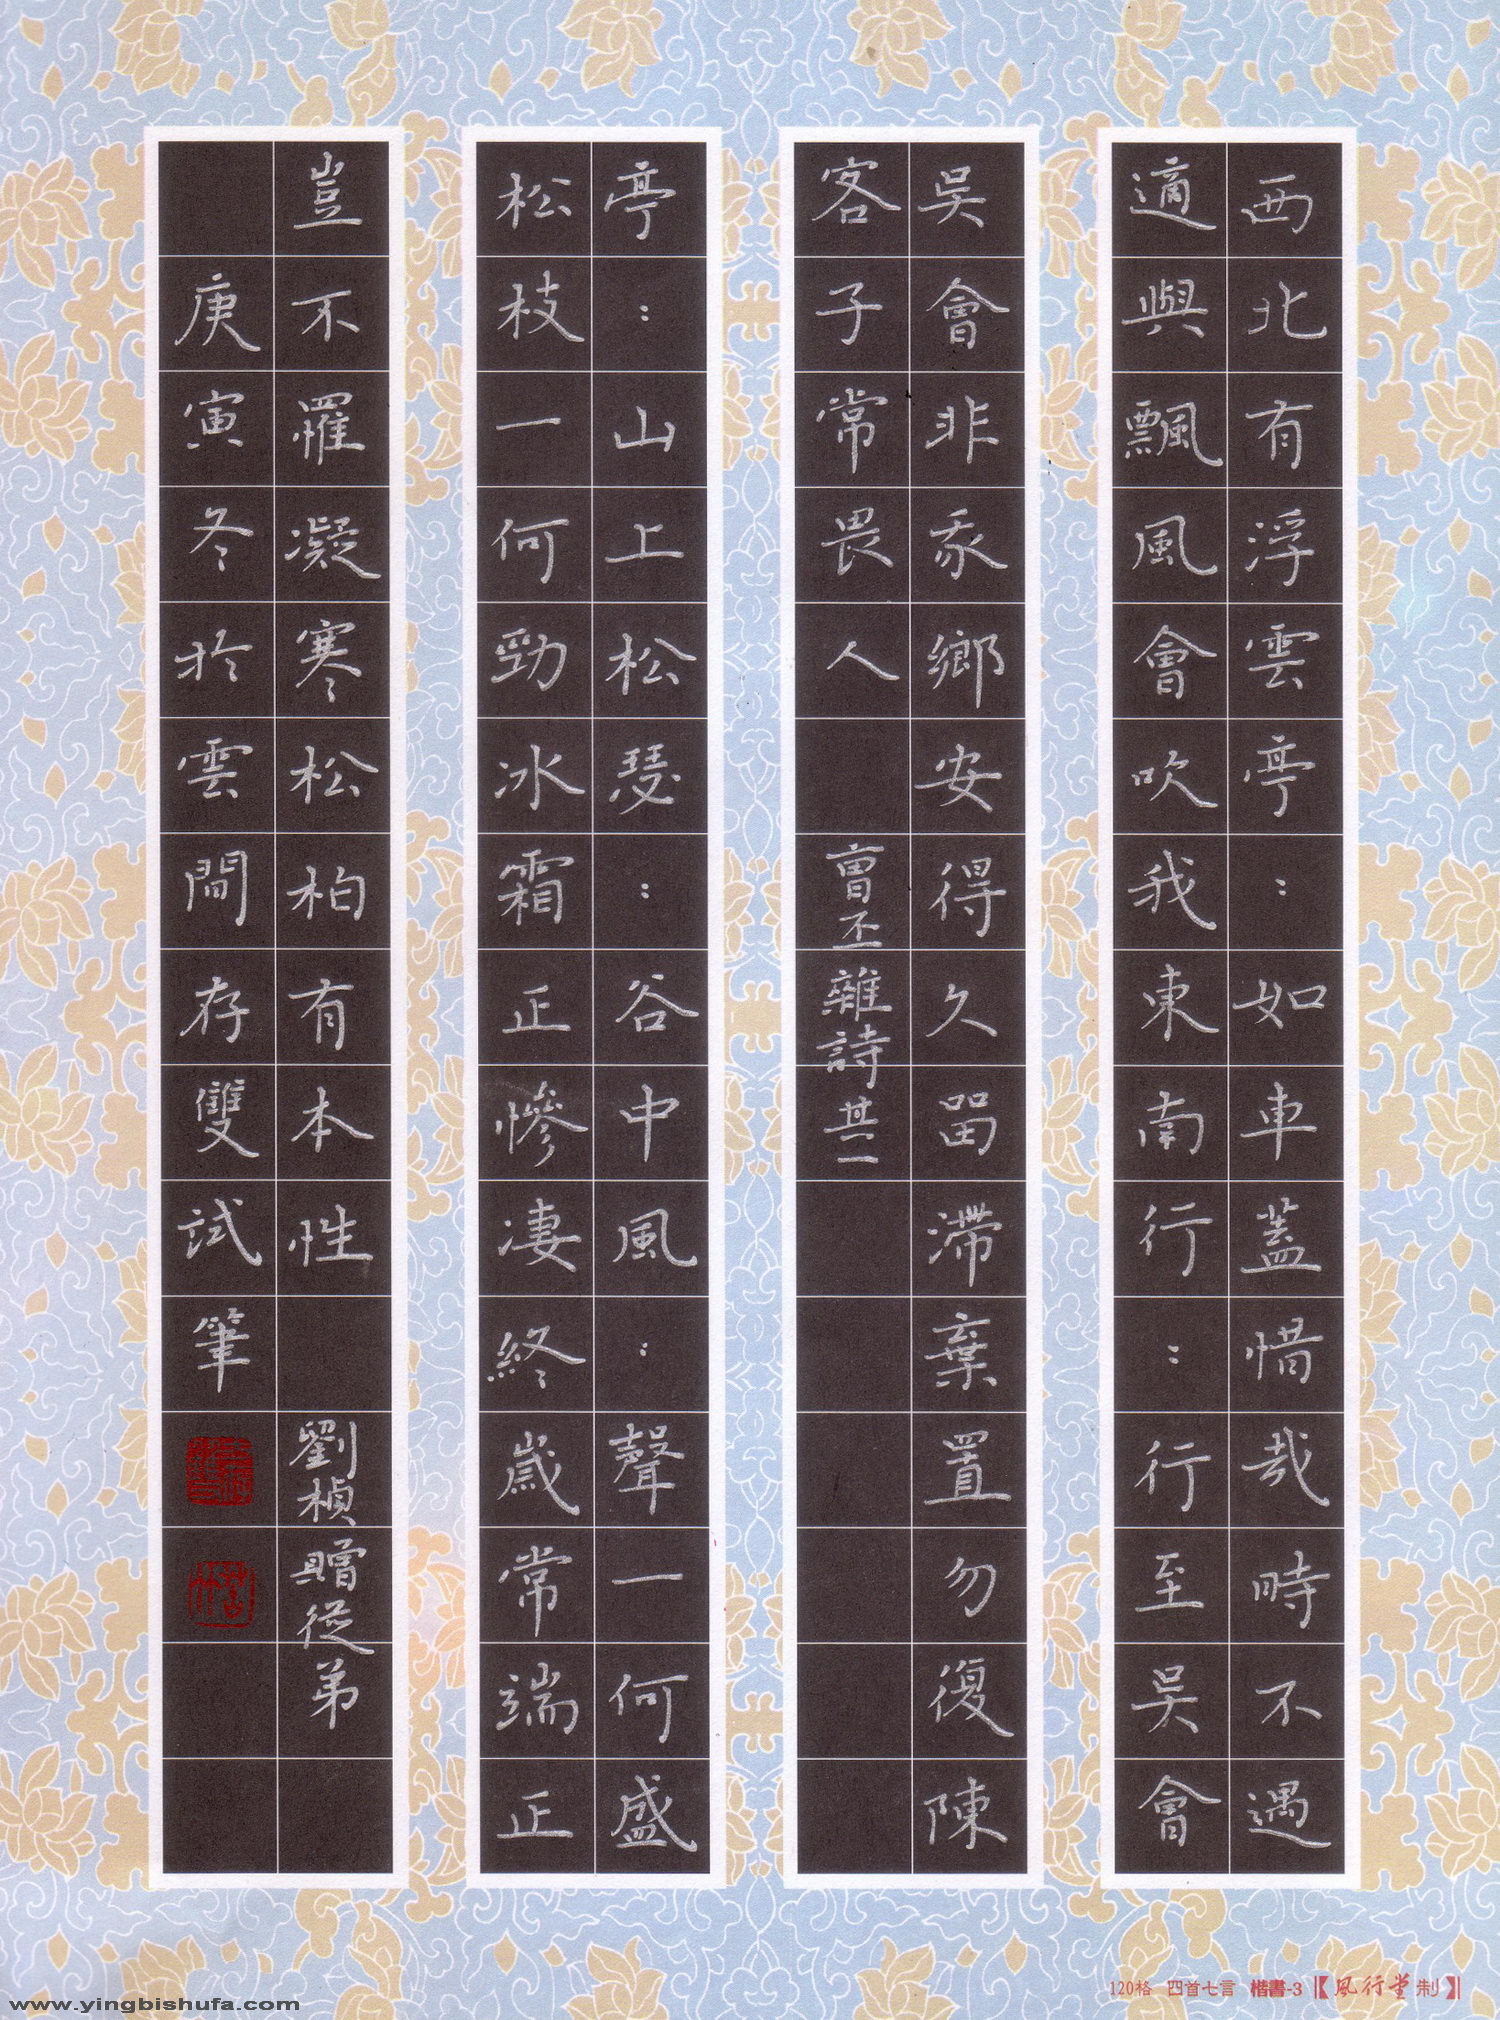 西北有浮雲亭：如車蓋惜哉時不遇
適與飄風會吹我東南行：行至吳會
吳會非我鄉安得久留滯棄置勿復陳
客子常畏人 曹丕雜詩其二
亭：山上松瑟：谷中風：聲一何盛
松枝一何勁冰霜正慘凄終歲常端正
豈不罹凝寒松柏有本性 劉楨贈從弟
庚寅冬於雲間存雙試筆
120格 四首七言 楷書-3【風行堂制】
www.yingbishufa.com